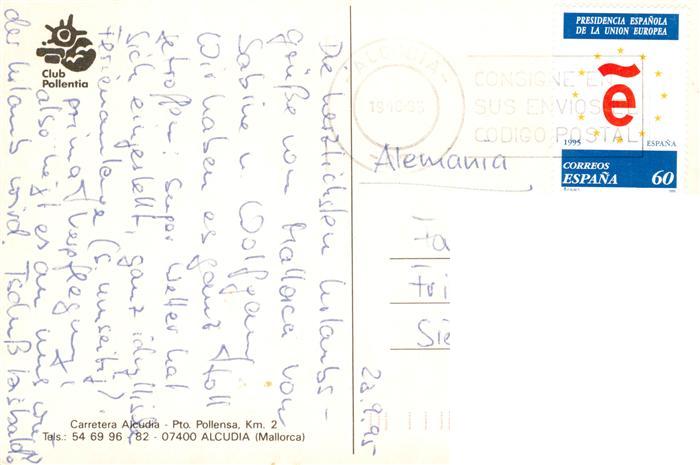 Club
Pollentia
Die herzlichsten Urlaubs-
grüße von Mallorca von
Sabine u. Wolfgang
Wir haben es ganz toll
getroffen: Super Wetter hat
sich eingestellt, ganz idyllische
Ferienanlage (s. umseitig).
prima Verpflegung!
also liegt es an uns wie
der Urlaub wird. Tschüß bis bald.
Carretera Alcudia - Pto. Pollensa, Km. 2
Tels.: 54 69 96 - 82 - 07400 ALCUDIA (Mallorca)
28.9.95
- ALCUDIA -
CONSIGNE EN
SUS ENVIOS EL
CODIGO POSTAL
PRESIDENCIA ESPAÑOLA
DE LA UNION EUROPEA
ẽ
1995 ESPAÑA
CORREOS
ESPAÑA 60
Alemania
Fa
Fri
Sie